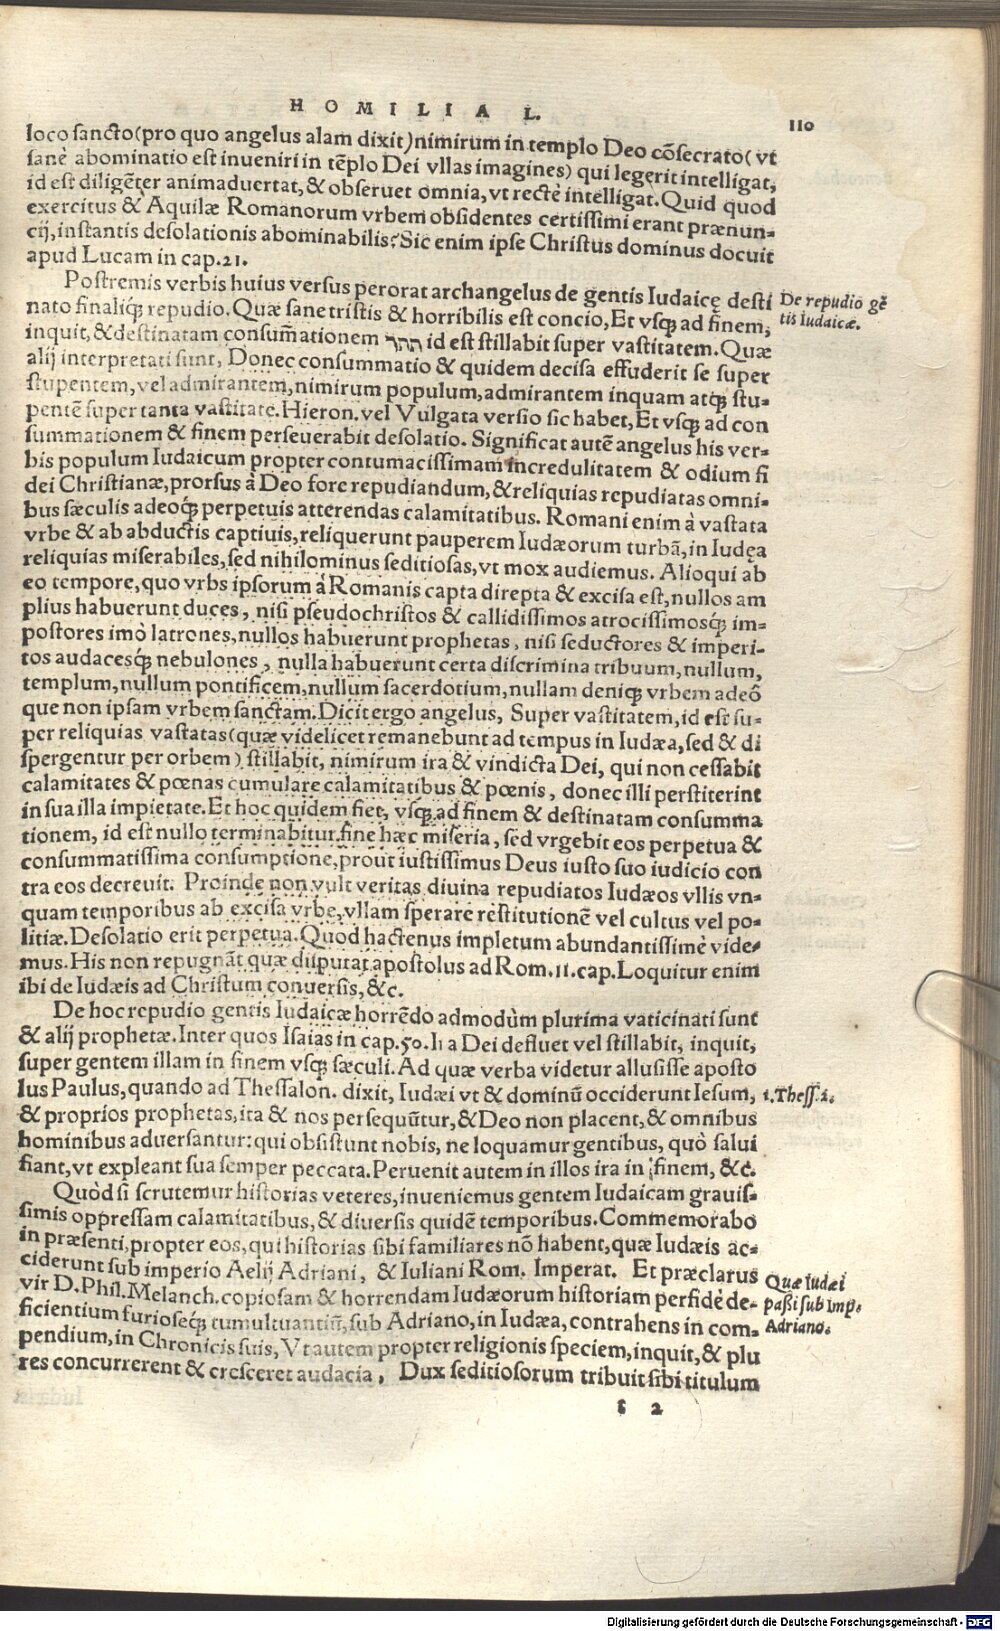 HOMILIA L.
110
loco sancto (pro quo angelus alam dixit) nimirum in templo Deo cõsecrato (vt
sanè abominatio est inueniri in tẽplo Dei vllas imagines) qui legerit intelligat,
id est diligẽter animaduertat, & obseruet omnia, vt rectè intelligat. Quid quod
exercitus & Aquilæ Romanorum vrbem obsidentes certissimi erant prænun-
cij, instantis desolationis abominabilis? Sic enim ipse Christus dominus docuit
apud Lucam in cap. 21.
Postremis verbis huius versus perorat archangelus de gentis Iudaicę desti
De repudio gẽ
nato finaliq́; repudio. Quæ sane tristis & horribilis est concio, Et vsq; ad finem,
tis Iudaicæ.
inquit, & destinatam consum̃ationem תתך id est stillabit super vastitatem. Quæ
alij interpretati sunt, Donec consummatio & quidem decisa effuderit se super
stupentem, vel admirantem, nimirum populum, admirantem inquam atq; stu-
pentẽ super tanta vastitate. Hieron. vel Vulgata versio sic habet, Et vsq; ad con
summationem & finem perseuerabit desolatio. Significat autẽ angelus his ver-
bis populum Iudaicum propter contumacissimam incredulitatem & odium fi
dei Christianæ, prorsus à Deo fore repudiandum, & reliquias repudiatas omni-
bus sæculis adeoq́; perpetuis atterendas calamitatibus. Romani enim à vastata
vrbe & ab abductis captiuis, reliquerunt pauperem Iudæorum turbã, in Iudęa
reliquias miserabiles, sed nihilominus seditiosas, vt mox audiemus. Alioqui ab
eo tempore, quo vrbs ipsorum à Romanis capta direpta & excisa est, nullos am
plius habuerunt duces, nisi pseudochristos & callidissimos atrocissimosq́; im-
postores imò latrones, nullos habuerunt prophetas, nisi seductores & imperi-
tos audacesq́; nebulones, nulla habuerunt certa discrimina tribuum, nullum,
templum, nullum pontificem, nullum sacerdotium, nullam deniq; vrbem adeó
que non ipsam vrbem sanctam. Dicit ergo angelus, Super vastitatem, id est su-
per reliquias vastatas (quæ videlicet remanebunt ad tempus in Iudæa, sed & di
spergentur per orbem) stillabit, nimirum ira & vindicta Dei, qui non cessabit
calamitates & pœnas cumulare calamitatibus & pœnis, donec illi perstiterint
in sua illa impietate. Et hoc quidem fiet, vsq; ad finem & destinatam consumma
tionem, id est nullo terminabitur fine hæc miseria, sed vrgebit eos perpetua &
consummatissima consumptione, prout iustissimus Deus iusto suo iudicio con
tra eos decreuit. Proinde non vult veritas diuina repudiatos Iudæos vllis vn-
quam temporibus ab excisa vrbe, vllam sperare restitutionẽ vel cultus vel po-
litiæ. Desolatio erit perpetua. Quod hactenus impletum abundantissimè vide-
mus. His non repugnãt quæ disputat apostolus ad Rom. 11. cap. Loquitur enim
ibi de Iudæis ad Christum conuersis, &c.
De hoc repudio gentis Iudaicæ horrẽdo admodùm plurima vaticinati sunt
& alij prophetæ. Inter quos Isaias in cap. 50. Ira Dei defluet vel stillabit, inquit,
super gentem illam in finem vsq; sæculi. Ad quæ verba videtur allusisse aposto
lus Paulus, quando ad Thessalon. dixit, Iudæi vt & dominũ occiderunt Iesum,
1. Thess. 2.
& proprios prophetas, ita & nos persequũtur, & Deo non placent, & omnibus
hominibus aduersantur: qui obsistunt nobis, ne loquamur gentibus, quò salui
fiant, vt expleant sua semper peccata. Peruenit autem in illos ira in finem, &c.
Quòd si scrutemur historias veteres, inueniemus gentem Iudaicam grauis-
simis oppressam calamitatibus, & diuersis quidẽ temporibus. Commemorabo
in præsenti, propter eos, qui historias sibi familiares nõ habent, quæ Iudæis ac-
ciderunt sub imperio Aelij Adriani, & Iuliani Rom. Imperat. Et præclarus
Quæ Iudæi
vir D. Phil. Melanch. copiosam & horrendam Iudæorum historiam perfidè de-
passi sub imp.
ficientium furioseq́; tumultuantiũ, sub Adriano, in Iudæa, contrahens in com-
Adriano.
pendium, in Chronicis suis, Vt autem propter religionis speciem, inquit, & plu
res concurrerent & cresceret audacia, Dux seditiosorum tribuit sibi titulum
ſ 2
Digitalisierung gefördert durch die Deutsche Forschungsgemeinschaft - DFG